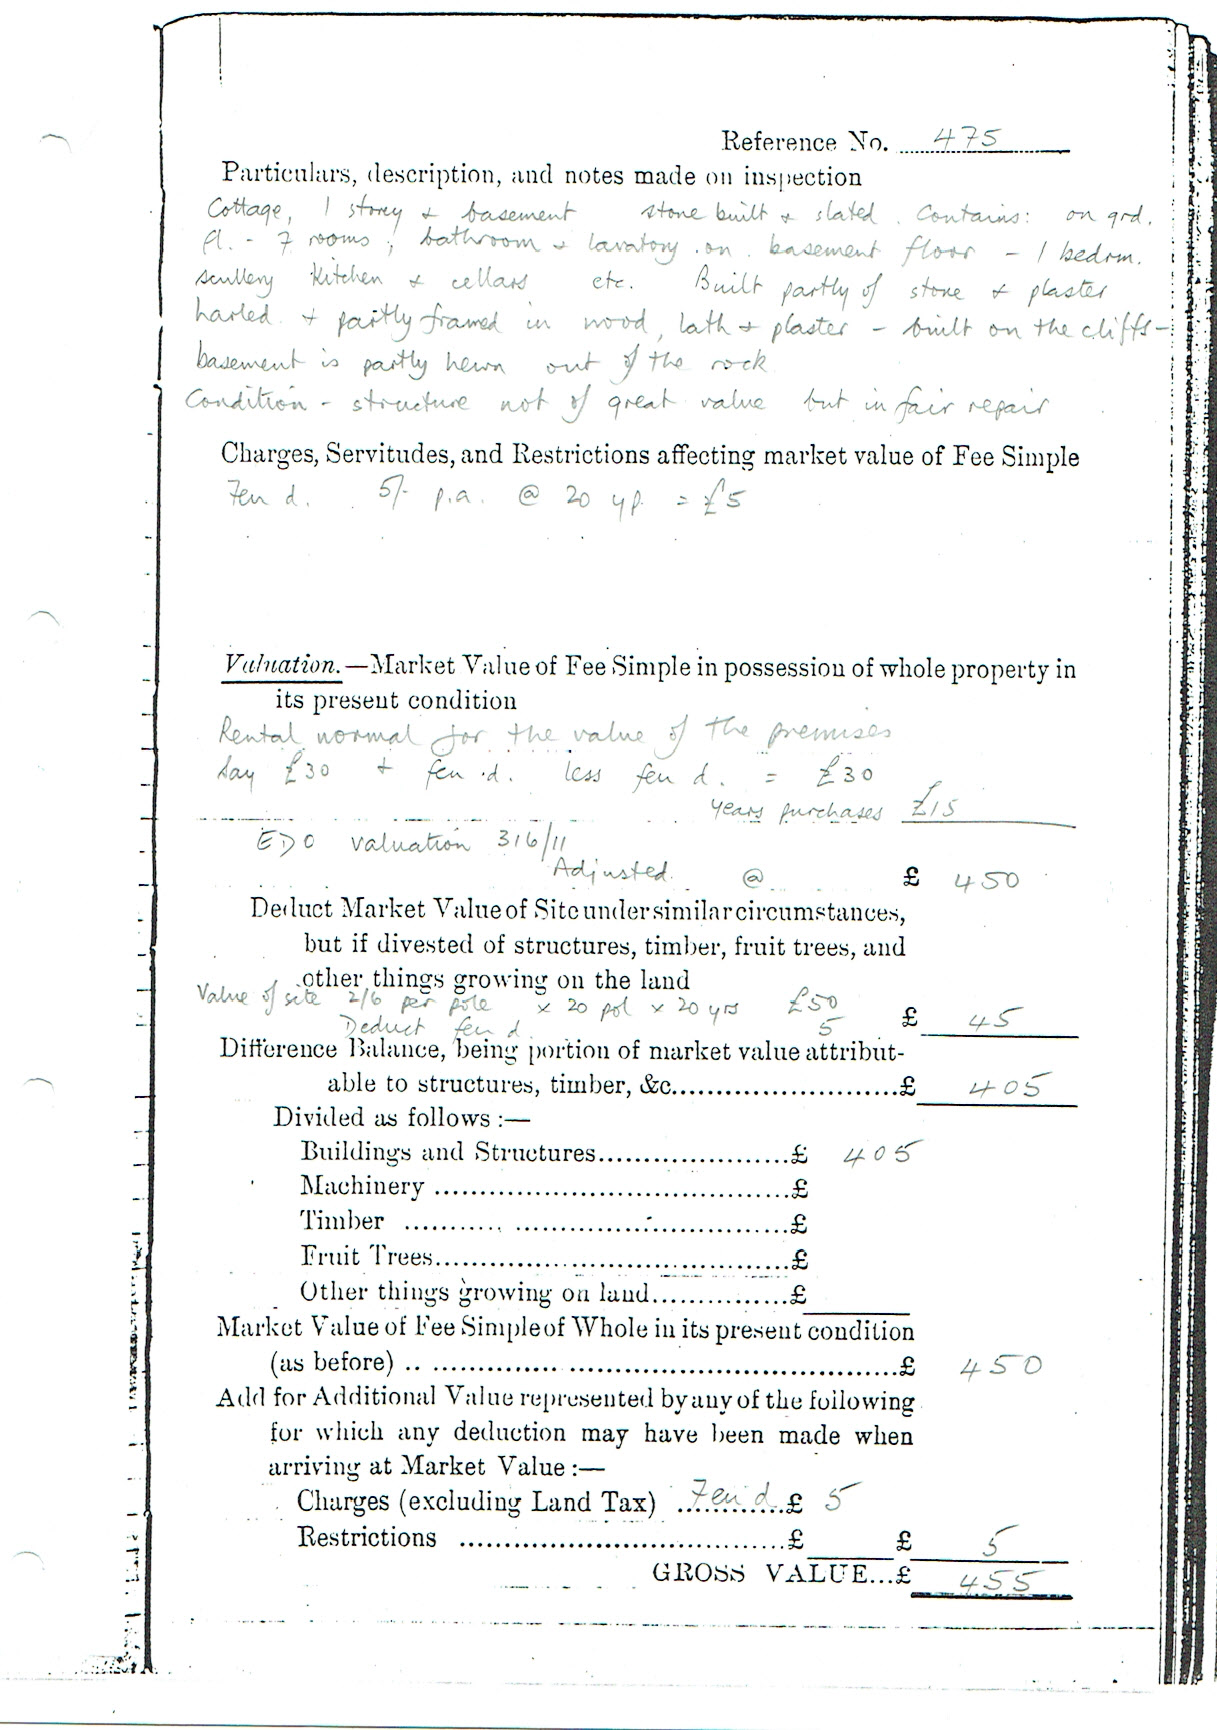 Reference No. 475
Particulars, description, and notes made on inspection
Cottage, 1 storey & basement stone built & slated. Contains: on grd.
fl. - 7 rooms, bathroom & lavatory. on. basement floor - 1 bedrm.
scullery kitchen & cellars etc. Built partly of stone & plaster
harled & partly framed in wood, lath & plaster - built on the cliffs -
basement is partly hewn out of the rock
Condition - structure not of great value but in fair repair
Charges, Servitudes, and Restrictions affecting market value of Fee Simple
Feu d. 5/- p.a. @ 20 yp. = £5
Valuation.—Market Value of Fee Simple in possession of whole property in
its present condition
Rental normal for the value of the premises
say £30 + feu d. less feu d. = £30
years purchases £15
EDO valuation 316/11
Adjusted @ £ 450
Deduct Market Value of Site under similar circumstances,
but if divested of structures, timber, fruit trees, and
other things growing on the land
Value of site 2/6 per pole x 20 pol x 20 yrs £50
Deduct feu d 5 £ 45
Difference Balance, being portion of market value attribut-
able to structures, timber, &c.........................£ 405
Divided as follows :—
Buildings and Structures.....................£ 405
Machinery .......................................£
Timber ...........................................£
Fruit Trees.......................................£
Other things growing on land...............£
Market Value of Fee Simple of Whole in its present condition
(as before) .. .....................................................£ 450
Add for Additional Value represented by any of the following
for which any deduction may have been made when
arriving at Market Value :—
Charges (excluding Land Tax) Feu d £ 5
Restrictions ....................................£ £ 5
GROSS VALUE...£ 455